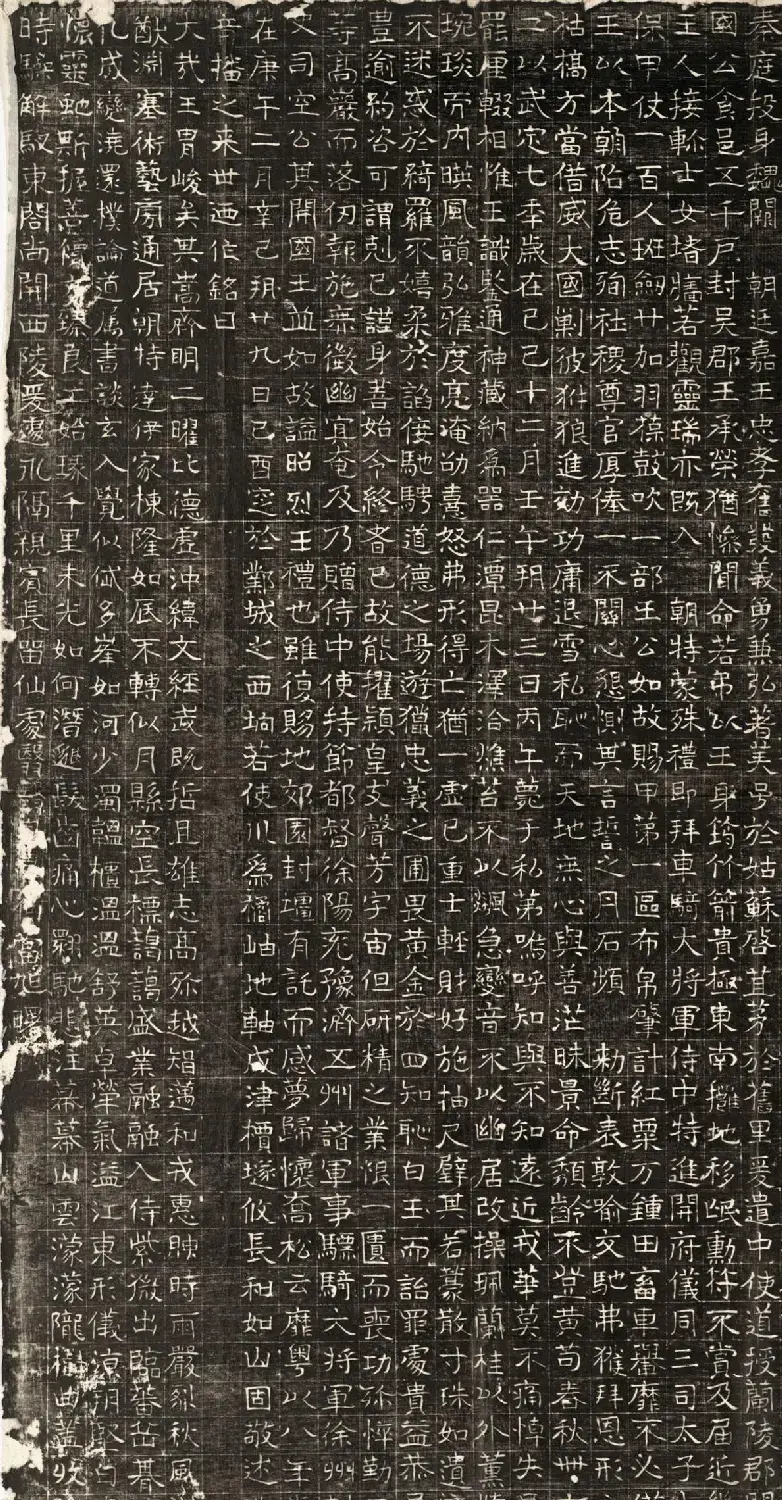 秦庭投身魏闕　朝廷嘉王忠孝舊發義勇兼弘著美号於姑蘇啓茅於舊里爰遣中使道授蘭陵郡開
國公食邑五千户封吴郡王承榮猶惕聞命若弔以王身筠竹箭貴極東南攡地移岷勳符不賞及届近
主人接軫士女堵牆若觀靈瑞亦既入　朝特蒙殊禮即拜車騎大將軍侍中特進開府儀同三司太子
保甲仗一百人班劒廿加羽葆鼓吹一部王公如故賜甲第一區布帛肇計紅粟万鍾田畜車轝靡不必
王以本朝陷危志殉社稷尊官厚俸一不關心懇惻異言誓之丹石頻　勑斷表敦喻交馳弗獲拜恩形
枯槁方當借威大國剿彼犲狼進効功庸退雪私恥而天地無心與善茫昧景命頹齡不登黄苟春秋卌
二以武定七年歲在己巳十二月壬午朔廿三日丙午薨于私第嗚呼知與不知遠近戎華莫不痛悼失
罷厘輟相惟王識鑒通神藏納爲器仁潭昆木澤洽燋苔不以飄急變音不以幽居改操珮蘭桂以外薰
琬琰而内暎風韻弘雅度亮淹劭憙怒弗形得亡猶一虚己重士輕財好施抽尺璧其若蒙散寸珠如遺
不迷惑於綺羅不嬉柔於諂佞馳騁道德之場遊獵忠義之圃畏黄金於四知恥白玉而詒罪處貴益恭
豐逾約咨可謂剋己謹身善始令終者已故能擢穎皇支聲芳宇宙但研精之業限一匱而喪功殄悴勤
等高巖而落仞報施無徵幽冥奄及乃贈侍中使持節都督徐陽兖豫濟五州諸軍事驃騎大將軍徐州
又司空公其開國王並如故謚昭烈王禮也雖復賜地郊園封壃有託而感夢歸懷喬松云靡粤以八年
在庚午二月辛巳朔廿九日己酉窆於鄴城之西埫若使川爲橋岫地軸成津檟塚攸長和如山固敬述
音播之来世迺作銘曰
大哉王胄峻矣其嵩齊明二曜比德虚沖緯文經武既哲且雄志高殄越智邁和戎惠映時雨嚴烈秋風
猷淵塞術藝通居朝特達伊家棟隆如底不轉似月縣空長標藹藹盛業融融入侍紫微出臨蕃岳朞
化成變澆還樸論道属書談玄入覺似岱多峯如河少濁韞櫝温温舒英卓犖氣溢江東形儀朔堅白
懷靈虵斯握善良工始琢千里未光如何潛遯鬓齒痛心翾馳悲汪幕幕山雲濛濛隴樹曲蓋收
時驂解馭東閣尚開西陵爰處永隔親賓長留仙處